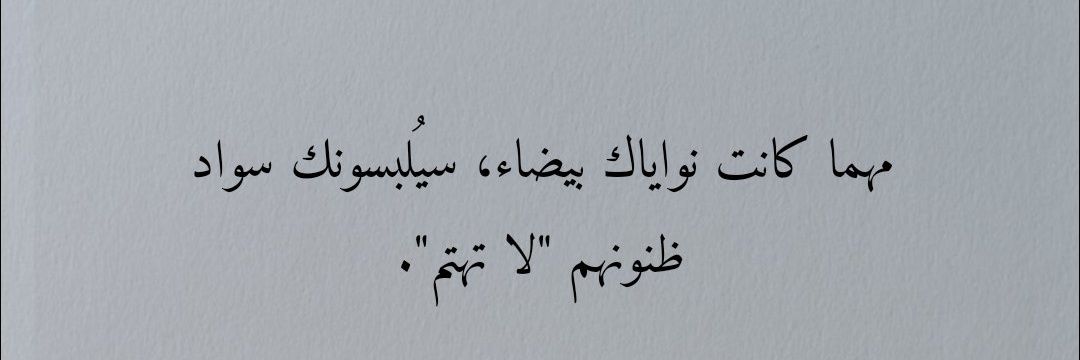 مهما كانت نواياك بيضاء، سيُلبسونك سواد
ظنونهم "لا تهتم".